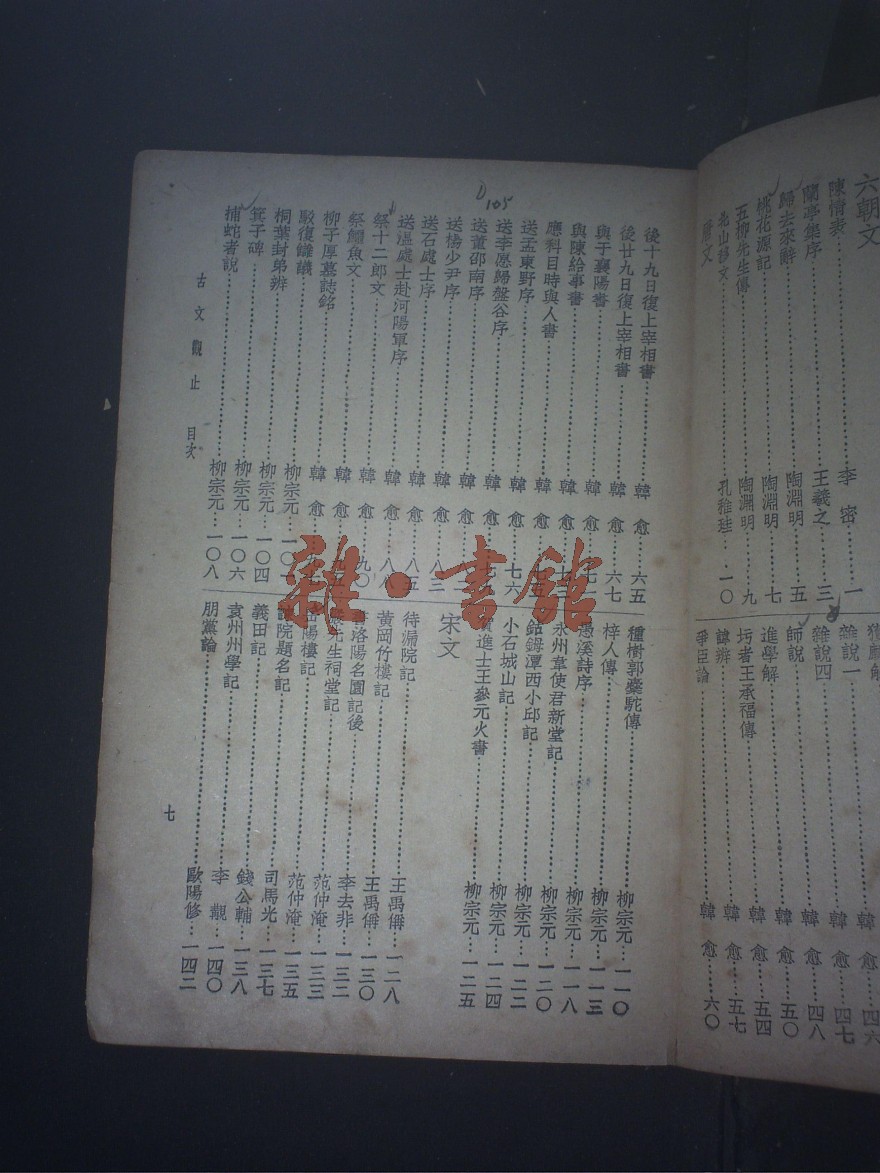 六朝文
陳情表……李密…一
蘭亭集序……王羲之…三
歸去來辭……陶淵明…五
桃花源記……陶淵明…七
五柳先生傳……陶淵明…九
北山移文……孔稚珪…一〇
唐文
獲麟解……韓愈…四六
雜說一……韓愈…四七
雜說四……韓愈…四八
師說……韓愈…五〇
進學解……韓愈…五四
圬者王承福傳……韓愈…五七
諱辨……韓愈…六〇
爭臣論……
105
後十九日復上宰相書……韓愈…六五
後廿九日復上宰相書……韓愈…六七
與于襄陽書……韓愈…
與陳給事書……韓愈…
應科目時與人書……韓愈…
送孟東野序……韓愈…七六
送李愿歸盤谷序……韓愈…
送董邵南序……韓愈…
送楊少尹序……韓愈…八三
送石處士序……韓愈…八五
送溫處士赴河陽軍序……韓愈…八八
祭十二郎文……韓愈…九〇
祭鱷魚文……韓愈…
柳子厚墓誌銘……韓愈…
駁復讎議……柳宗元…
桐葉封弟辨……柳宗元…一〇四
箕子碑……柳宗元…一〇六
捕蛇者說……柳宗元…一〇八
種樹郭橐駝傳……柳宗元…一一〇
梓人傳……柳宗元…一一三
愚溪詩序……柳宗元…一一八
永州韋使君新堂記……柳宗元…一二〇
鈷鉧潭西小邱記……柳宗元…一二二
小石城山記……柳宗元…一二四
賀進士王參元火書……柳宗元…一二五
宋文
待漏院記……王禹偁…一二八
黃岡竹樓記……王禹偁…一三〇
書洛陽名園記後……李去非…一三二
嚴先生祠堂記……范仲淹…一三三
岳陽樓記……范仲淹…一三五
諫院題名記……司馬光…一三七
義田記……錢公輔…一三八
袁州州學記……李覯…一四〇
朋黨論……歐陽修…一四二
古文觀止 目次
七
雜·書館